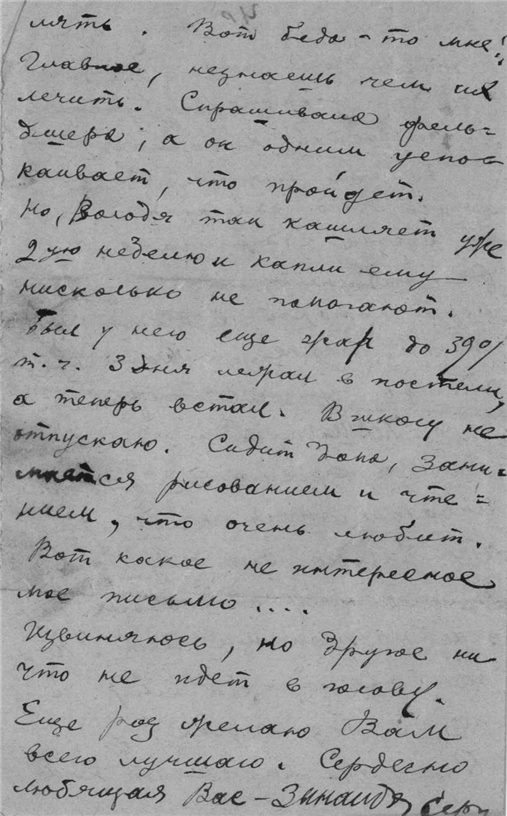 лять. Вот беда-то мне!
Главное, незнаешь чем их
лечить. Спрашивала фель=
дшера; а он одним успо
каивает, что пройдет.
Но, Володя так кашляет уже
2ую неделю и капли ему
нисколько не помогают.
Был у него еще жар до 39°
т. ч. 3 дня лежал в постели,
а теперь встал. В школу не
отпускаю. Сидит дома, зани-
мается рисованием и чте=
нием, что очень любит.
Вот какое не интересное
мое письмо....
Извиняюсь, но другое ни
что не идет в голову.
Еще раз желаю Вам
всего лучшаго. Сердечно
любящая Вас - Зинаида